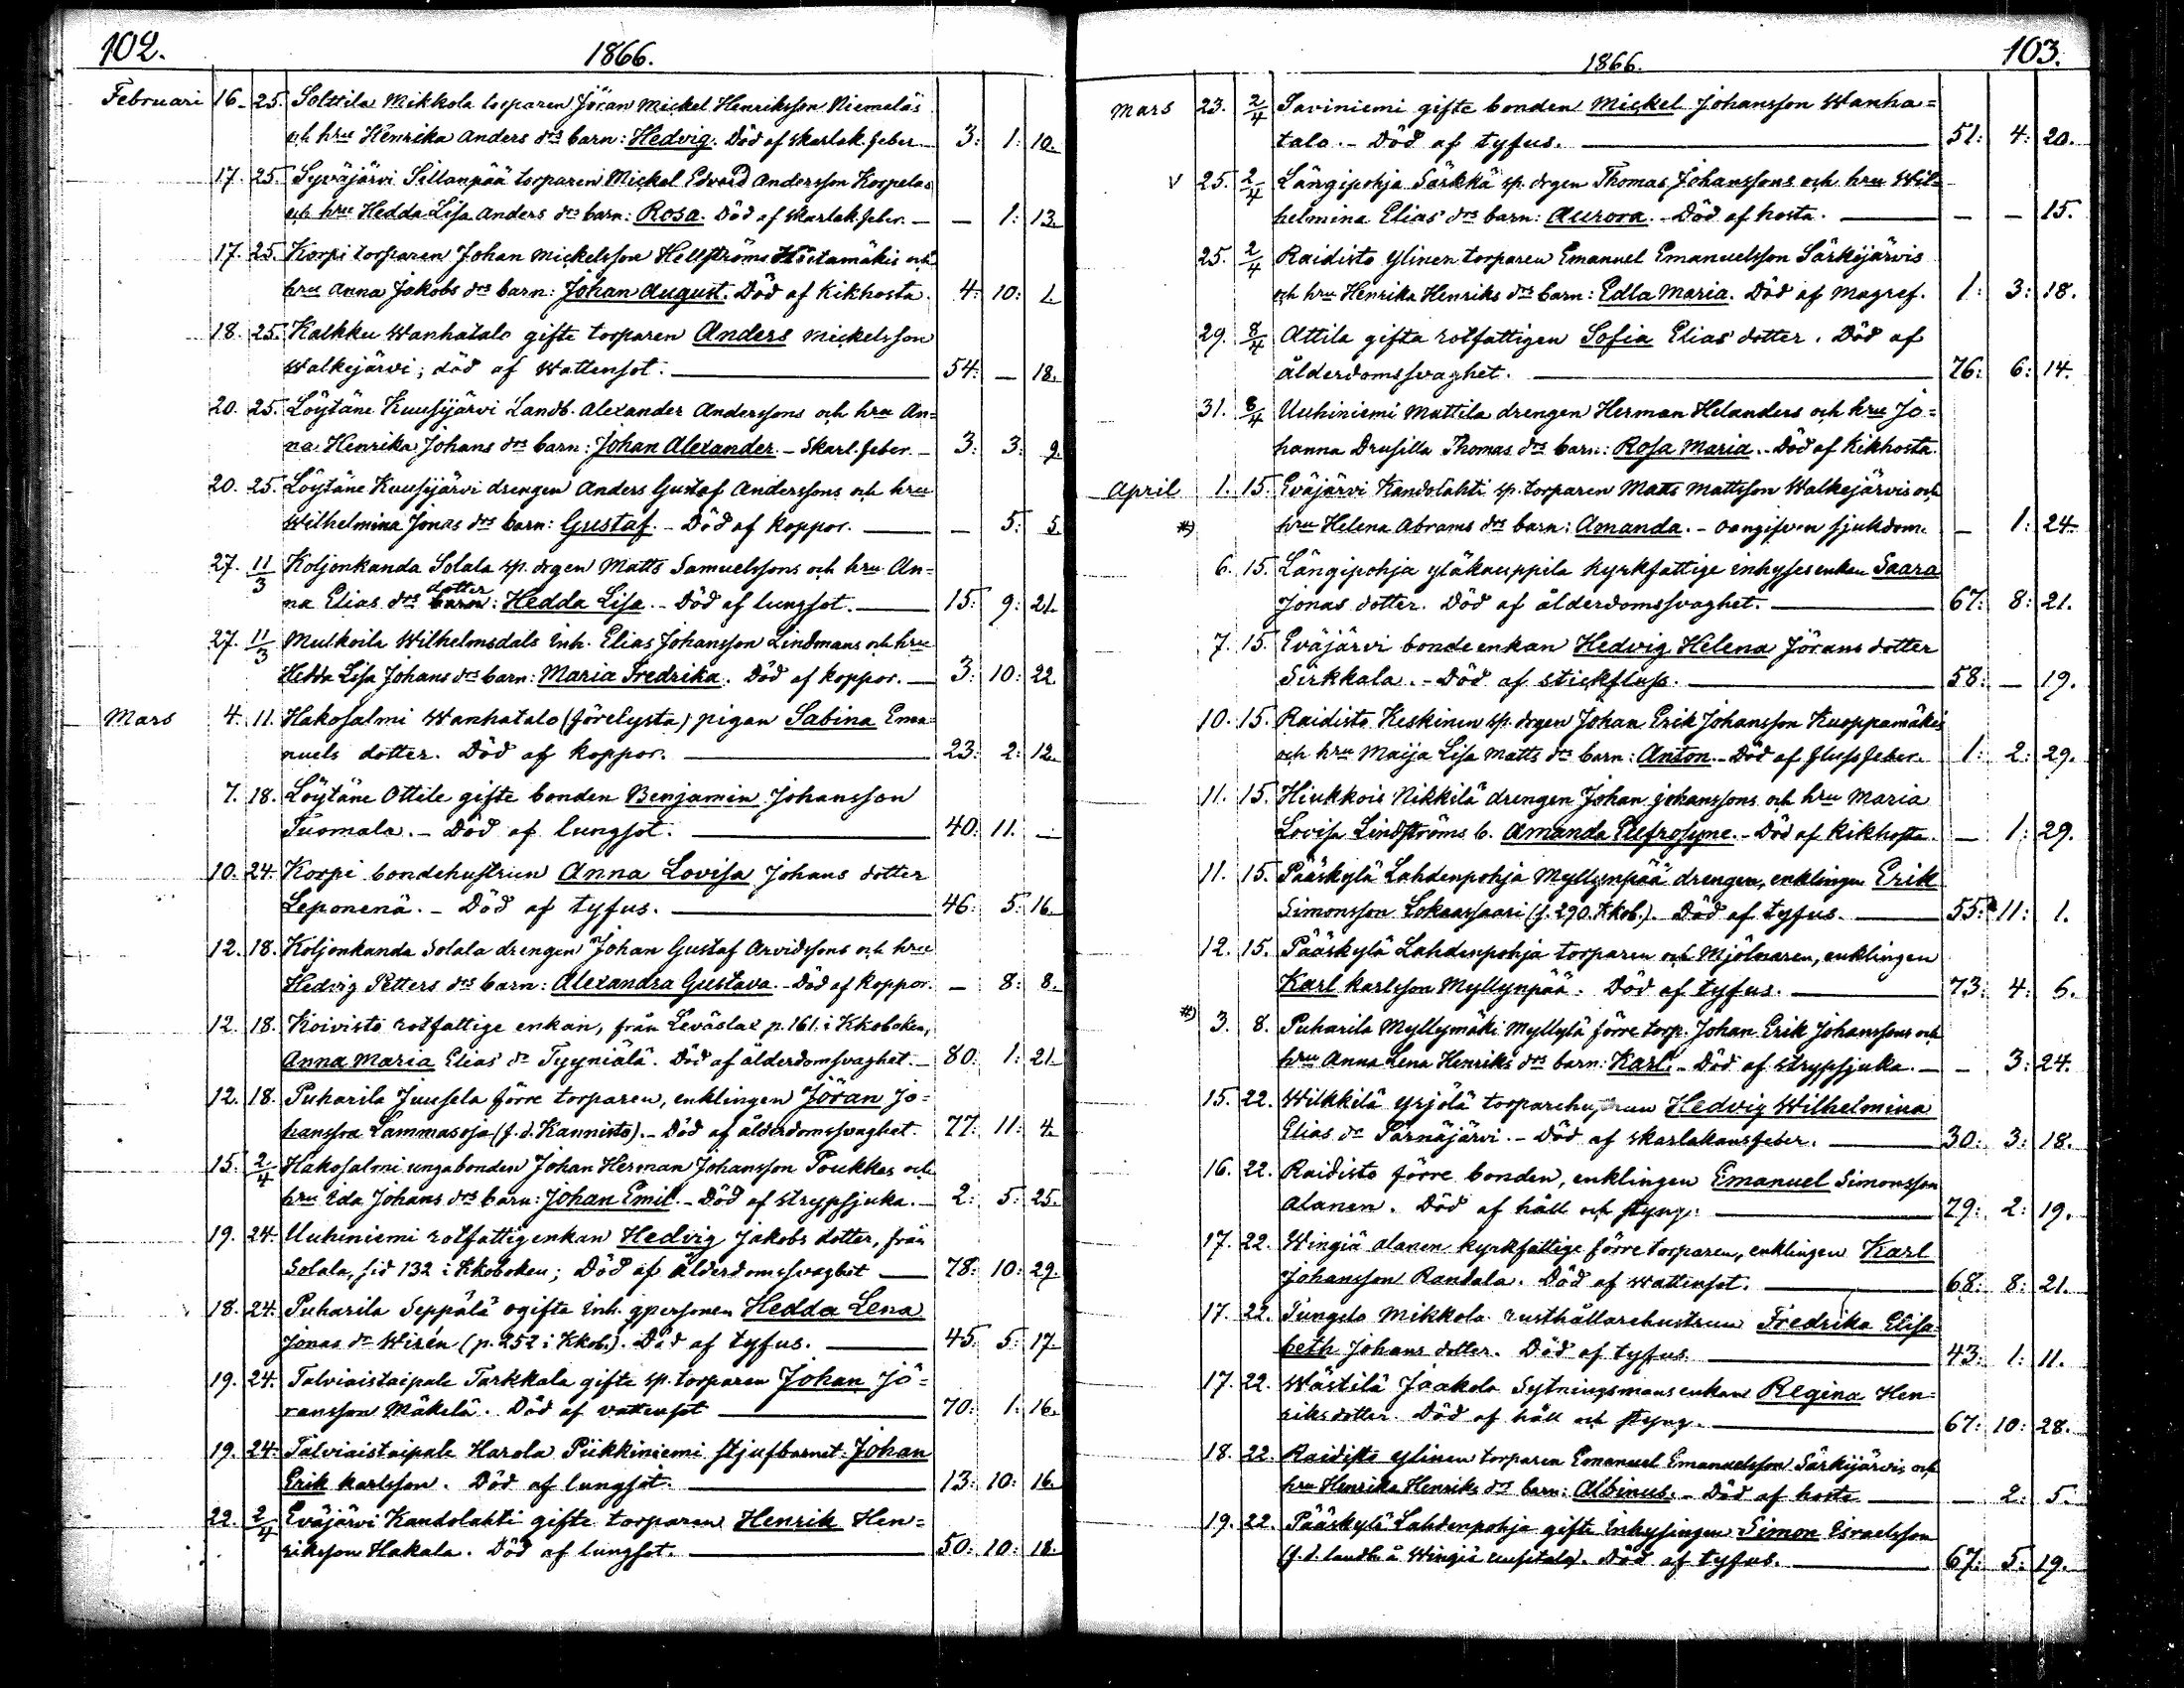 102.
1866.
Februari 16. 25. Solttila Mikkola torparen Jöran Mickel Henriksson Niemeläs
och hru Henrika Anders drs barn: Hedvig. Död af skarlak. feber. 3: 1: 10.
17. 25. Syväjärvi Sillanpää torparen Mickel Edvard Andersson Korpelas
och hru Hedda Lisa Anders drs barn: Rosa. Död af skarlak. feber. — — 1: 13.
17. 25. Korpi torparen Johan Mickelsson Hellströms Höstamäkis och
hru Anna Jakobs drs barn: Johan August. Död af Kikhosta. 4: 10: 1.
18. 25. Kalkku Wanhatalo gifte torparen Anders Mickelsson
Walkejärvi; död af Wattensot. — 54: — 18.
20. 25. Löytäne Kuusijärvi Landb. Alexander Anderssons och hru An=
na Henrika Johans drs barn: Johan Alexander. – Skarl. feber. – 3: 3: 9.
20. 25. Löytäne Kuusijärvi drengen Anders Gustaf Anderssons och hru
Wilhelmina Jonas drs barn: Gustaf. – Död af koppor. — — 5: 5.
27. 11/3 Koljonkanda Solala sp. drgen Matts Samuelssons och hru An=
na Elias drs barn dotter: Hedda Lisa. – Död af lungsot. — 15: 9: 21.
27. 11/3 Mulkoila Wilhelmsdals Inh. Elias Johansson Lindmans och hru
Hedda Lisa Johans drs barn: Maria Fredrika. Död af koppor. — 3: 10: 22.
Mars 4. 11. Hakosalmi Wanhatalo (förelysta) pigan Sabina Ema=
nuels dotter. Död af koppor. — 23: 2: 12.
7. 18. Löytäne Ottile gifte bonden Benjamin Johansson
Tuomala. – Död af lungsot. — 40: 11. —
10. 24. Korpi bondehustrun Anna Lovisa Johans dotter
Leponenä. – Död af tyfus. — 46: 5: 16.
12. 18. Koljonkanda Solala drengen Johan Gustaf Arvidssons och hru
Hedvig Petters drs barn: Alexandra Gustava. – Död af koppor. — 8: 8.
12. 18. Koivisto rotfattige enkan, från Leväslax p. 161. i Kkoboken,
Anna Maria Elias dr Tyyniälä. Död af ålderdomsvaghet. – 80: 1: 21.
12. 18. Puharila Juusela förre torparen, enklingen Jöran Jo=
hansson Lammasoja (f.d. Kannisto). – Död af ålderdomssvaghet. 77: 11: 4.
15. 2/4 Hakosalmi ungabonden Johan Herman Johansson Poukkas och
hru Ida Johans drs barn: Johan Emil. – Död af strypsjuka. – 2: 5: 25.
19. 24. Uuhiniemi rotfattigenkan Hedvig Jakobs dotter, från
Solala, sid 132 i Kkoboken; Död af ålderdomssvaghet — 78: 10: 29.
18. 24. Puharila Seppälä ogifta Inh. qpersonen Hedda Lena
Jonas dr Wirén (p. 252 i Kkob.). Död af tyfus. — 45: 5: 17.
19. 24. Talviaistaipale Tarkkala gifte sp. torparen Johan Jö=
ransson Mäkelä. Död af vattensot — 70: 1: 16.
19. 24. Talviaistaipale Harola Piikkiniemi stjufbarnet: Johan
Erik Karlsson. Död af lungsot. — 13: 10: 16.
22. 2/4 Eväjärvi Kandolahti gifte torparen Henrik Hen=
riksson Hakala. Död af lungsot. — 50: 10: 18.
1866.
103.
Mars 23. 2/4 Saviniemi gifte bonden Mickel Johansson Wanha=
talo. – Död af tyfus. — 51: 4: 20.
v 25. 2/4 Längipohja Särkkä sp. drgen Thomas Johanssons och hru Wil=
helmina Elias drs barn: Aurora. – Död af hosta. — — — 15.
25. 2/4 Raidisto Ylinen torparen Emanuel Emanuelsson Särkijärvis
och hru Henrika Henriks drs barn: Edla Maria. Död af Magref. 1: 3: 18.
29. 8/4 Attila gifta rotfattigen Sofia Elias dotter. Död af
ålderdomssvaghet. — 76: 6: 14.
31. 8/4 Uuhiniemi Mattila drengen Herman Helanders och hru Jo=
hanna Drusilla Thomas drs barn: Rosa Maria. – Död af Kikhosta.
April 1. 15. Eväjärvi Kandolahti sp. torparen Matts Mattsson Walkejärvis och
#) hru Helena Abrams drs barn: Amanda. – oangifven sjukdom. — 1: 24.
6. 15. Längipohja Yläkauppila kyrkfattige inhysesenkan Saara
Jonas dotter. Död af ålderdomssvaghet. — 67: 8: 21.
7. 15. Eväjärvi bondeenkan Hedvig Helena Jörans dotter
Sirkkala. – Död af stickfluss. — 58: — 19.
10. 15. Raidisto Keskinen sp. drgen Johan Erik Johansson Kuoppamäkis
och hru Maija Lisa Matts drs barn: Anton. – Död af flussfeber. 1: 2: 29.
11. 15. Hiukkois Nikkilä drengen Johan Johanssons och hru Maria
Lovisa Lindströms b. Amanda Eufrosyne. – Död af Kikhosta. — 1: 29.
11. 15. Pääskylä Lahdenpohja Myllynpää drengen, enklingen Erik
Simonsson Lokaassaari (f. 290. Kkob.). Död af tyfus. — 55: 11: 1.
12. 15. Pääskylä Lahdenpohja torparen och Mjölnaren, enklingen
Karl Karlsson Myllynpää. Död af tyfus. — 73: 4: 6.
#) 3. 8. Puharila Myllymäki Myllylä förre torp. Johan Erik Johanssons och
hru Anna Lena Henriks drs barn: Karl. – Död af strypsjuka. – — 3: 24.
15. 22. Wilkkilä Yrjölä torparehustrun Hedvig Wilhelmina
Elias dr Särnäjärvi. – Död af skarlakansfeber. — 30: 3: 18.
16. 22. Raidisto förre bonden, enklingen Emanuel Simonsson
Alanen. Död af håll och styng. — 79: 2: 19.
17. 22. Wingiä Alanen kyrkfattige förre torparen, enklingen Karl
Johansson Randala. Död af Wattensot. — 68: 8: 21.
17. 22. Pungelo Mikkola rusthållarehustrun Fredrika Elisa=
beth Johans dotter. Död af tyfus. — 43: 1: 11.
17. 22. Wästilä Jaakola Sytningsmansenkan Regina Hen=
riksdotter. Död af håll och styng. — 67: 10: 28.
18. 22. Raidisto Ylinen torparen Emanuel Emanuelsson Särkijärvis och
hru Henrika Henriks drs barn: Albinus. – Död af hosta — — 2: 5.
19. 22. Pääskylä Lahdenpohja gifte Inhysingen Simon Israelsson
(f.d. landb. å Wingiä Uusitalo). Död af tyfus. — 67: 5: 19.